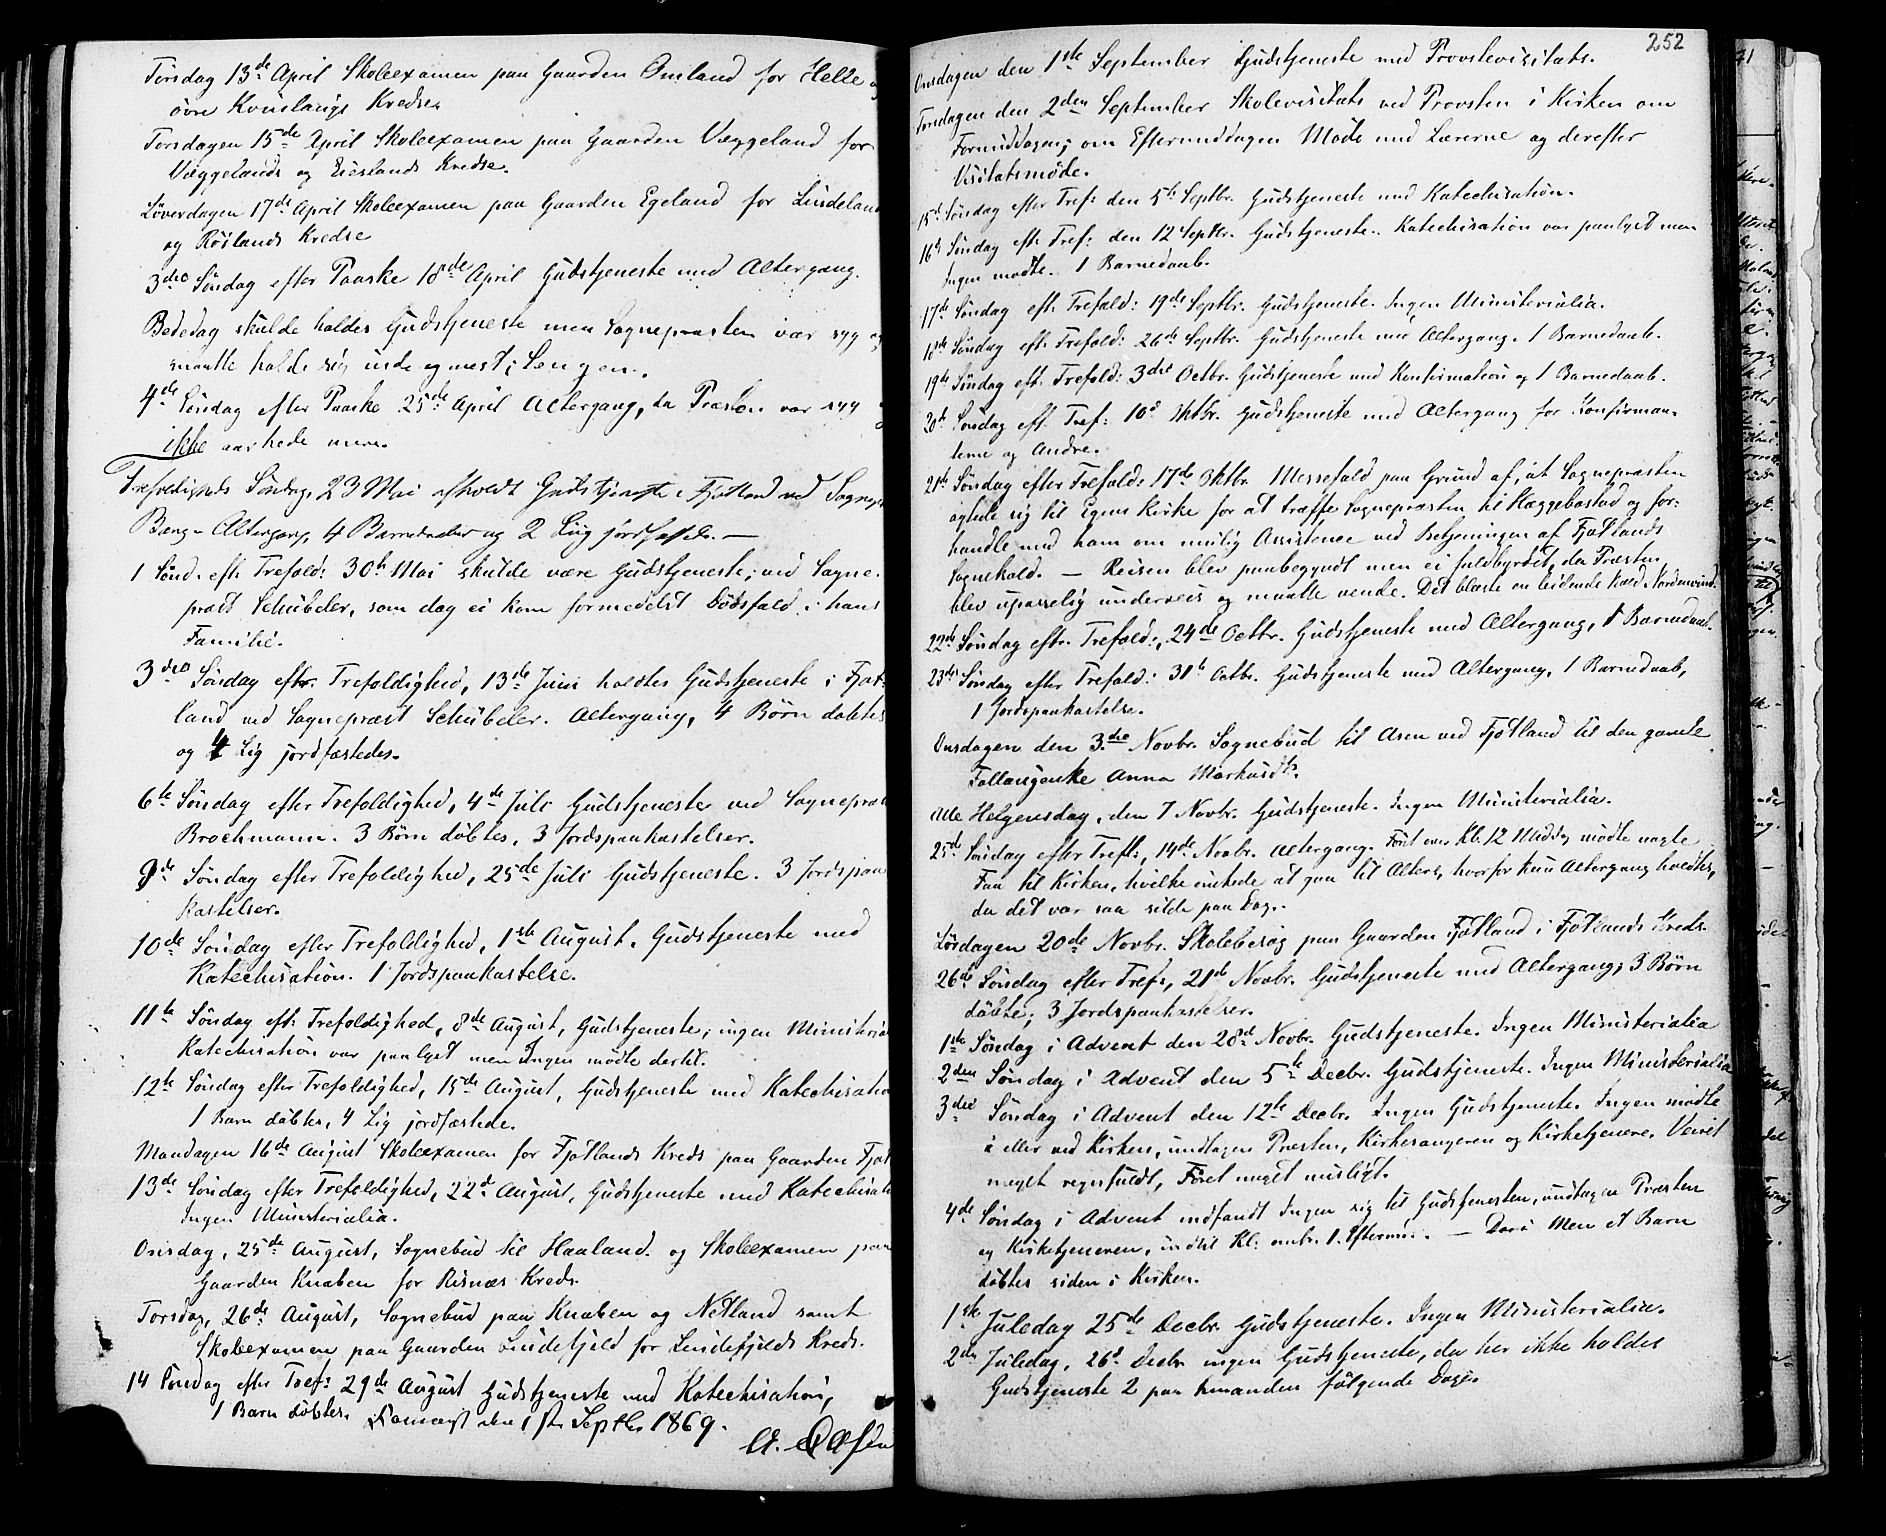 Tirsdag 13de April Skoleexamen paa Gaarden Omland for Helle og
øvre Kvinlaugs Kredse.
Torsdagen 15de April Skoleexamen paa Gaarden Væggeland for
Væggelands og Eieslands Kredse.
Løverdagen 17de April Skoleexamen paa Gaarden Egeland for Lindeland
og Röilands Kredse
3die Søndag efter Paaske 18de April Gudstjeneste med Altergang.
Bededag skulde holdes Gudstjeneste men Sognepræsten var syg og
maatte holde sig inde og mest i Sengen.
4de Søndag efter Paaske 25de April Altergang, da Præsten var syg
ikke mere.
Trefoldigheds Søndag, 23 Mai afholdt Gudstjeneste i Fjotland ved Sognepr
Bang. Altergang, 4 Barnedaaber og 2 Liig jordfæstede. —
1 Sønd. eft. Trefold: 30te Mai skulde være Gudstjeneste, ved Sogne-
præst Schübeler, som dog ei kom formedelst Dødsfald i hans
Familie.
3die Søndag eftr. Trefoldighed, 13de Juni holdtes Gudstjeneste i Fjot-
land ved Sognepræst Schübeler. Altergang, 4 Børn døbtes
og 4 Lig jordfæstedes.
6te Søndag efter Trefoldighed, 4de Juli Gudstjeneste ved Sognepræst
Brochmann. 3 Børn døbtes, 3 Jordspaakastelser.
9de Søndag efter Trefoldighed, 25de Juli Gudstjeneste. 3 Jordspaa
kastelser.
10de Søndag efter Trefoldighed, 1ste August, Gudstjeneste med
Katechisation. 1 Jordspaakastelse.
11te Søndag eft: Trefoldighed, 8de August, Gudstjeneste; ingen Ministeria
Katechisation var paalyst men Ingen mødte dertil.
12te Søndag efter Trefoldighed, 15de August, Gudstjeneste med Katechisatio
1 Barn døbtes, 4 Lig jordfæstede.
Mandagen 16de August Skoleexamen for Fjotlands Kreds paa Gaarden Fjot
13de Søndag efter Trefoldighed, 22de August, Gudstjeneste med Katechisati
Ingen Ministerialia.
Onsdag, 25de August, Sognebud til Haaland og Skoleexamen paa
Gaarden Knaben for Risnæs Kreds.
Torsdag, 26de August, Sognebud paa Knaben og Netland samt
Skoleexamen paa Gaarden Lindefjeld for Lindefjelds Kreds.
14 Søndag efter Tref: 29de August Gudstjeneste med Katechisation,
1 Barn døbtes. den 1ste Septbr 1869.
252
Onsdagen den 1ste September Gudstjeneste med Provstevisitats.
Torsdagen den 2den September Skolevisitats ved Provsten i Kirken om
Formiddagen; om Eftermiddagen Møde med Lærerne og derefter
Visitatsmøde.
15de Søndag efter Tref: den 5te Septbr. Gudstjeneste med Katechisation.
16de Søndag eft. Tref: den 12 Septbr. Gudstjeneste. Katechisation var paalyst men
Ingen mødte. 1 Barnedaab.
17de Søndag eft. Trefold: 19de Septbr. Gudstjeneste. Ingen Ministerialia.
18de Søndag eft. Trefold: 26de Septbr. Gudstjeneste med Altergang. 1 Barnedaab.
19de Søndag eft. Trefold: 3die Octbr. Gudstjeneste med Konfirmation og 1 Barnedaab.
20de Søndag eft. Tref: 10de Oktbr. Gudstjeneste med Altergang for Konfirman-
terne og Andre.
21de Søndag efter Trefold: 17de Oktbr. Messefald paa Grund af, at Sognepræsten
agtede sig til Egens Kirke for at træffe Sognepræsten til Hæggebostad og for-
handle med ham om mulig Assistence ved Betjeningen af Fjotlands
Sognekald. — Reisen blev paabegyndt men ei fuldbyrdet, da Præsten
blev upasselig underveis og maatte vende. Det blæste en bidende kold Nordenvind.
22de Søndag eftr. Trefold:, 24de Octbr. Gudstjeneste med Altergang, 1 Barnedaab.
23de Søndag efter Trefold: 31te Octbr. Gudstjeneste med Altergang, 1 Barnedaab,
1 Jordspaakastelse.
Onsdagen den 3die Novbr. Sognebud til Aasen ved Fjotland til den gamle
Anna Markusdtr.
Alle Helgensdag, den 7 Novbr. Gudstjeneste. Ingen Ministerialia.
25de Søndag efter Treft:, 14de Novbr. Altergang. Først over Kl. 12 Middag mødte nogle
Faa til Kirken, hvilke ønskede at gaa til Alters, hvorfor kun Altergang holdtes,
da det var saa silde paa Dag.
Lørdagen 20de Novbr. Skolebesøg paa Gaarden Fjotland i Fjotlands Kreds.
26de Søndag efter Tref:, 21de Novbr. Gudstjeneste med Altergang; 3 Børn
døbte; 3 Jordspaakastelser.
1ste Søndag i Advent den 28de Novbr. Gudstjeneste. Ingen Ministerialia
2den Søndag i Advent den 5te Decbr. Gudstjeneste. Ingen Ministerialia
3die Søndag i Advent den 12te Decbr. Ingen Gudstjeneste. Ingen mødte
i eller ved Kirken, undtagen Præsten, Kirkesangeren og Kirketjenere. Veiret
meget regnfuldt, Føret meget misligt.
4de Søndag i Advent indfandt Ingen sig til Gudstjenesten, undtagen Præsten
og Kirketjeneren, indtil Kl: omtr. 1. Efterm. — Men et Barn
døbtes siden i Kirken.
1ste Juledag 25de Decbr. Gudstjeneste. Ingen Ministerialia.
2den Juledag, 26de Decbr. ingen Gudstjeneste, da her ikke holdes
Gudstjeneste 2 paa hinanden følgende Dage.